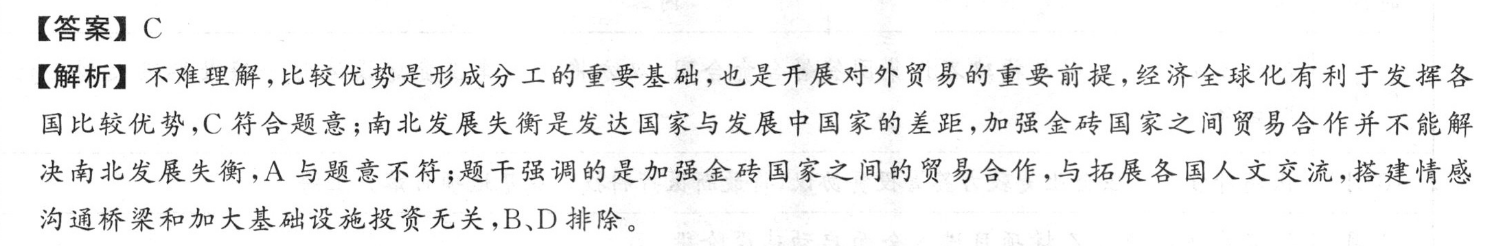 【答案】C
【解析】不难理解,比较优势是形成分工的重要基础,也是开展对外贸易的重要前提,经济全球化有利于发挥各
国比较优势,C符合题意;南北发展失衡是发达国家与发展中国家的差距,加强金砖国家之间贸易合作并不能解
决南北发展失衡,A与题意不符;题干强调的是加强金砖国家之间的贸易合作,与拓展各国人文交流,搭建情感
沟通桥梁和加大基础设施投资无关,B、D排除。